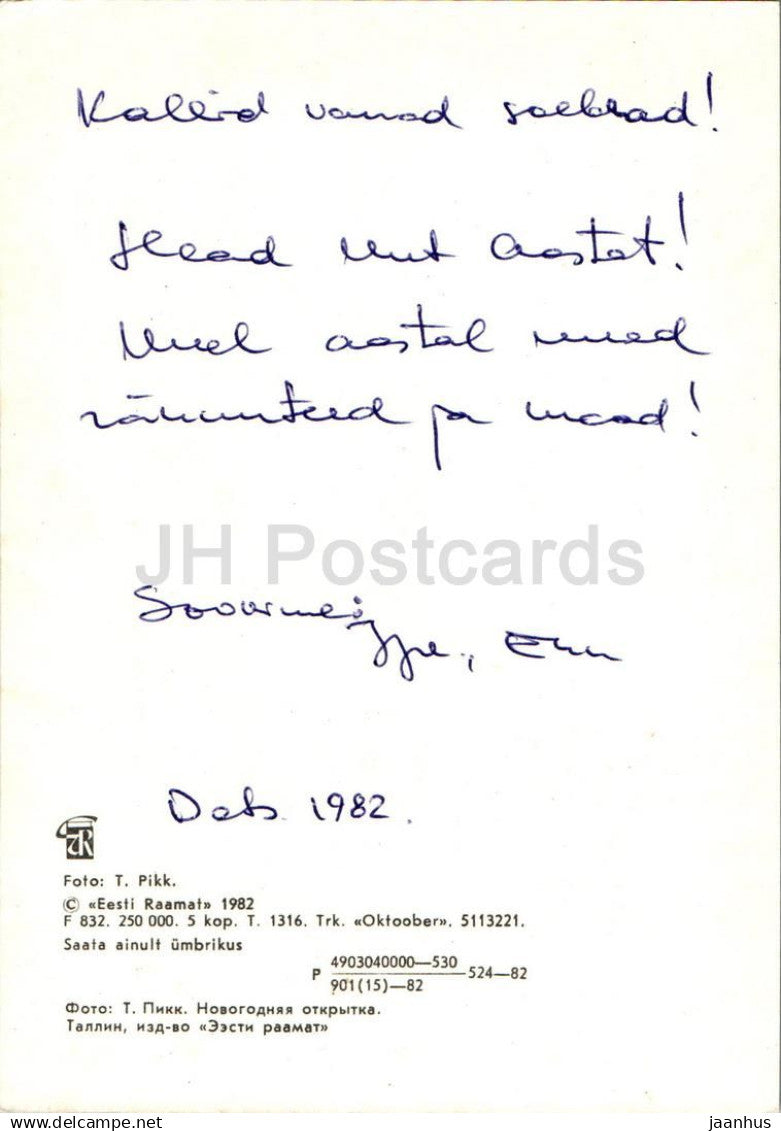 Kallid vanad sõbrad!
Head Uut Aastat!
Uuel aastal uued
rännuteed ja maad!
Soovime
Enn
Dets 1982.
JH Postcards
Foto: T. Pikk.
© «Eesti Raamat» 1982
F 832. 250 000. 5 kop. T. 1316. Trk. «Oktoober». 5113221.
Saata ainult ümbrikus
P 4903040000—530
901(15)—82
—524—82
Фото: Т. Пикк. Новогодняя открытка.
Таллин, изд-во «Ээсти раамат»
www.delcampe.net
jaanhus